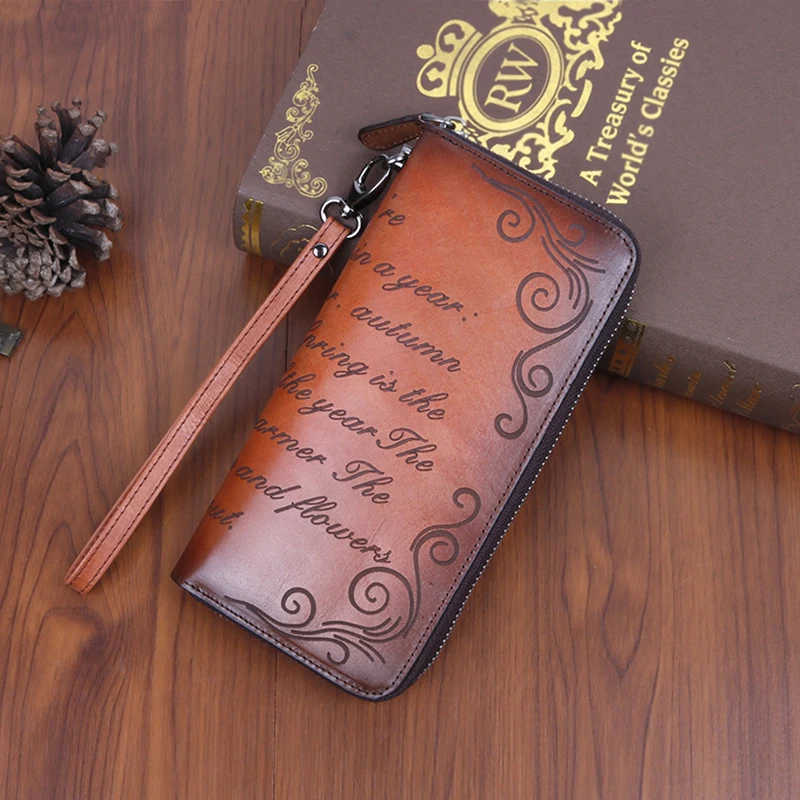 RW
A Treasury of
World's Classics
're
in a year:
r. autumn
pring is the
the year.The
armer. The
and flowers
out.